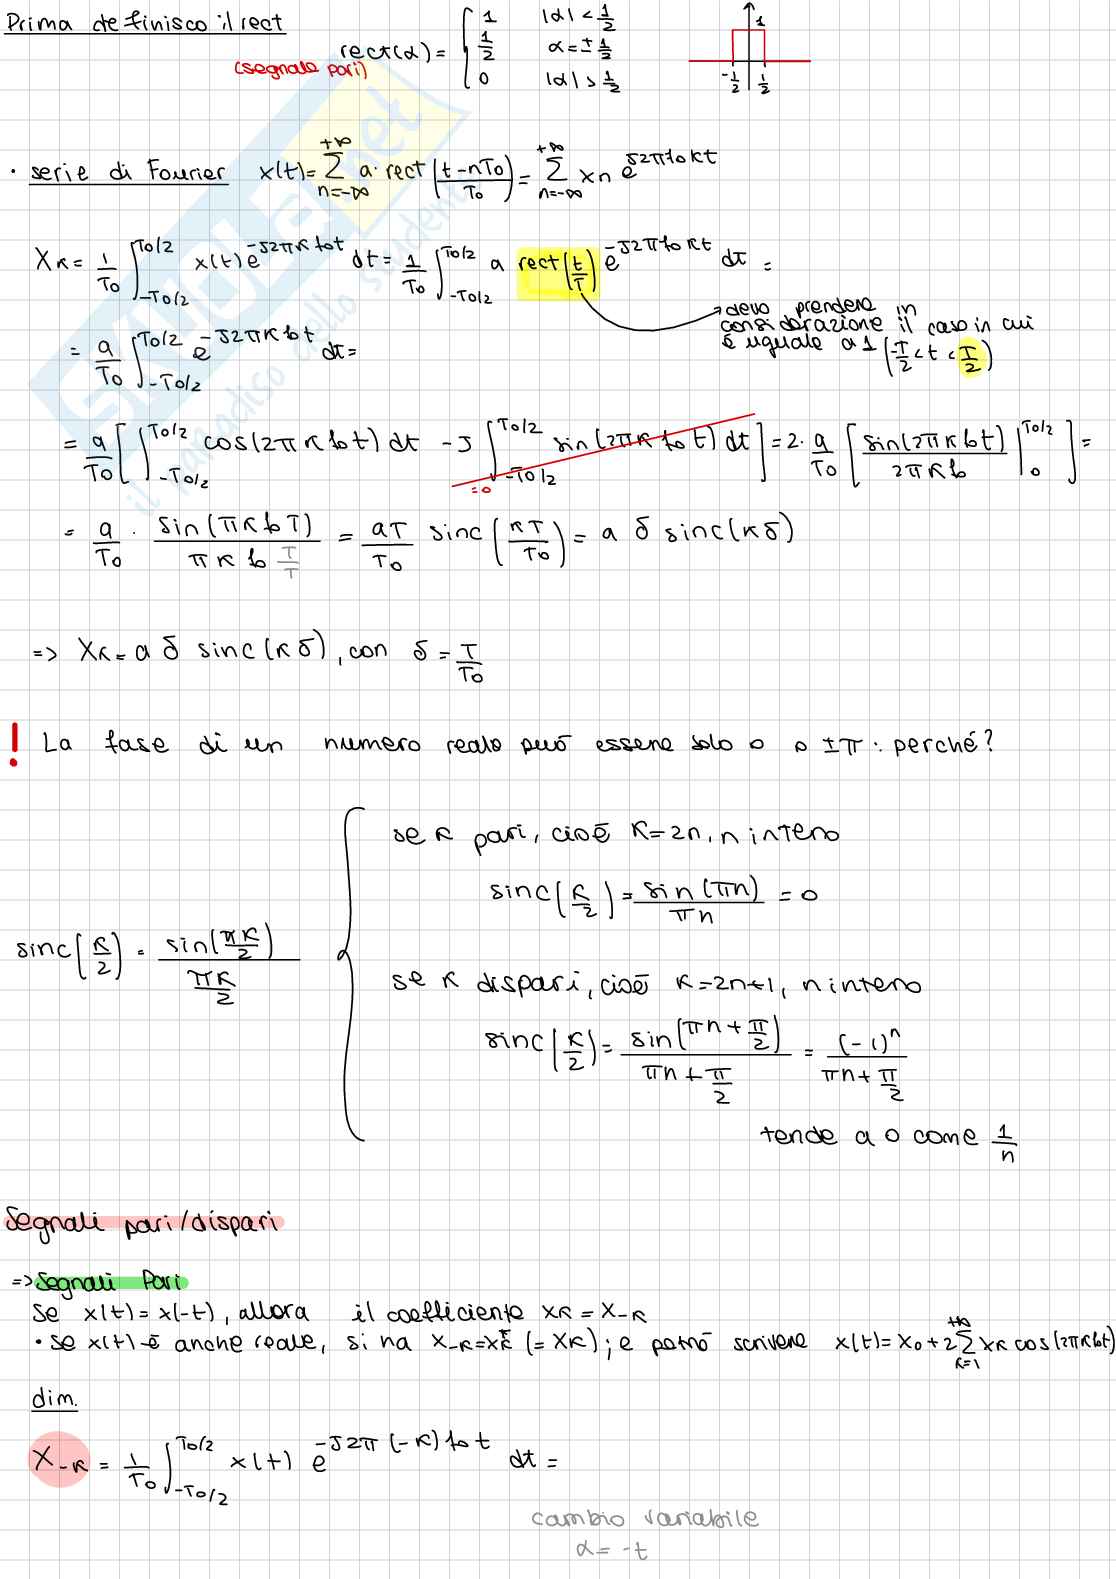 Prima definisco il rect
rect(α) = { 1 |α| < 1/2
1/2 α = ± 1/2
0 |α| > 1/2
(segnale pari)
1
-1/2 1/2
• serie di Fourier x(t) = ∑_{n=-∞}^{+∞} a · rect((t-nT0)/T0) = ∑_{n=-∞}^{+∞} xn e^{J2πf0kt}
Xk = 1/T0 ∫_{-T0/2}^{T0/2} x(t) e^{-J2πkf0t} dt = 1/T0 ∫_{-T0/2}^{T0/2} a rect(t/T) e^{-J2πf0kt} dt =
→ devo prendere in
considerazione il caso in cui
è uguale a 1 (-T/2 < t < T/2)
= a/T0 ∫_{-T0/2}^{T0/2} e^{-J2πkf0t} dt =
= a/T0 [ ∫_{-T0/2}^{T0/2} cos(2πkf0t) dt - J ∫_{-T0/2}^{T0/2} sin(2πkf0t) dt ] = 2 · a/T0 [ sin(2πkf0t)/2πkf0 |_0^{T0/2} ] =
=0
= a/T0 · sin(πkf0T)/(πkf0 T/T) = aT/T0 sinc(kT/T0) = a δ sinc(kδ)
=> Xk = a δ sinc(kδ), con δ = T/T0
! La fase di un numero reale può essere solo 0 o ±π : perché?
sinc(k/2) = sin(πk/2)/(πk/2) {
se k pari, cioè k=2n, n intero
sinc(k/2) = sin(πn)/πn = 0
se k dispari, cioè k=2n+1, n intero
sinc(k/2) = sin(πn + π/2)/(πn + π/2) = (-1)^n/(πn + π/2)
tende a 0 come 1/n
Segnali pari/dispari
=> Segnali Pari
se x(t) = x(-t), allora il coefficiente xk = x-k
• se x(t) è anche reale, si ha x-k = xk* (= xk); e potrò scrivere x(t) = x0 + 2∑_{k=1}^{+∞} xk cos(2πkf0t)
dim.
X-k = 1/T0 ∫_{-T0/2}^{T0/2} x(t) e^{-J2π(-k)f0t} dt =
cambio variabile
α = -t
SKUOLA.net
il paradiso dello studente